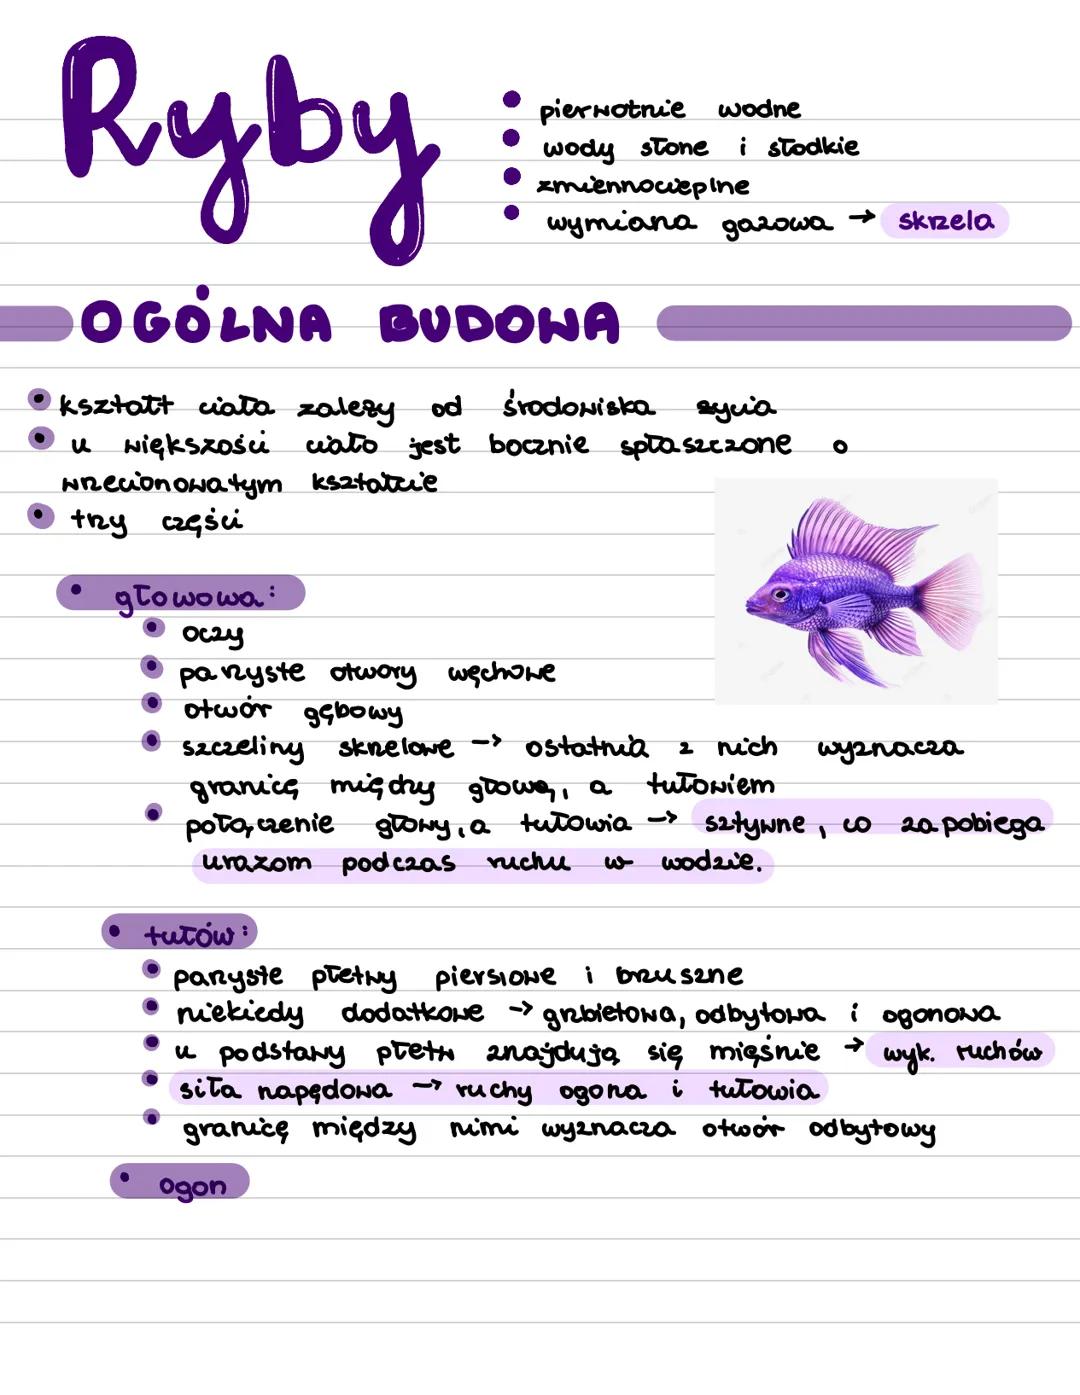 Ryby
pierwotnie wodne
wody słone i słodkie
zmiennocieplne
wymiana gazowa → skrzela
OGÓLNA BUDOWA
kształt ciała zależy od środowiska życia
u większości ciało jest bocznie spłaszczone o
wrzecionowatym kształcie
trzy części
głowowa:
oczy
parzyste otwory węchowe
otwór gębowy
szczeliny skrzelowe → ostatnia z nich wyznacza
granicę między głową, a tułowiem
połączenie głowy, a tułowia → sztywne, co zapobiega
urazom podczas ruchu w wodzie.
tułów:
parzyste płetwy piersiowe i brzuszne
niekiedy dodatkowe → grzbietowa, odbytowa i ogonowa
u podstawy płetw znajdują się mięśnie → wyk. ruchów
siła napędowa → ruchy ogona i tułowia
granicę między nimi wyznacza otwór odbytowy
ogon